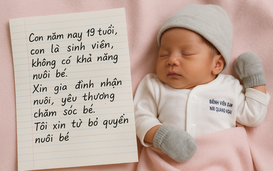 Con năm nay 19 tuổi,
con là sinh viên,
không có khả năng
nuôi bé.
Xin gia đình nhận
nuôi, yêu thương
chăm sóc bé.
Tôi xin từ bỏ quyền
nuôi bé
BỆNH VIỆN
QUANG